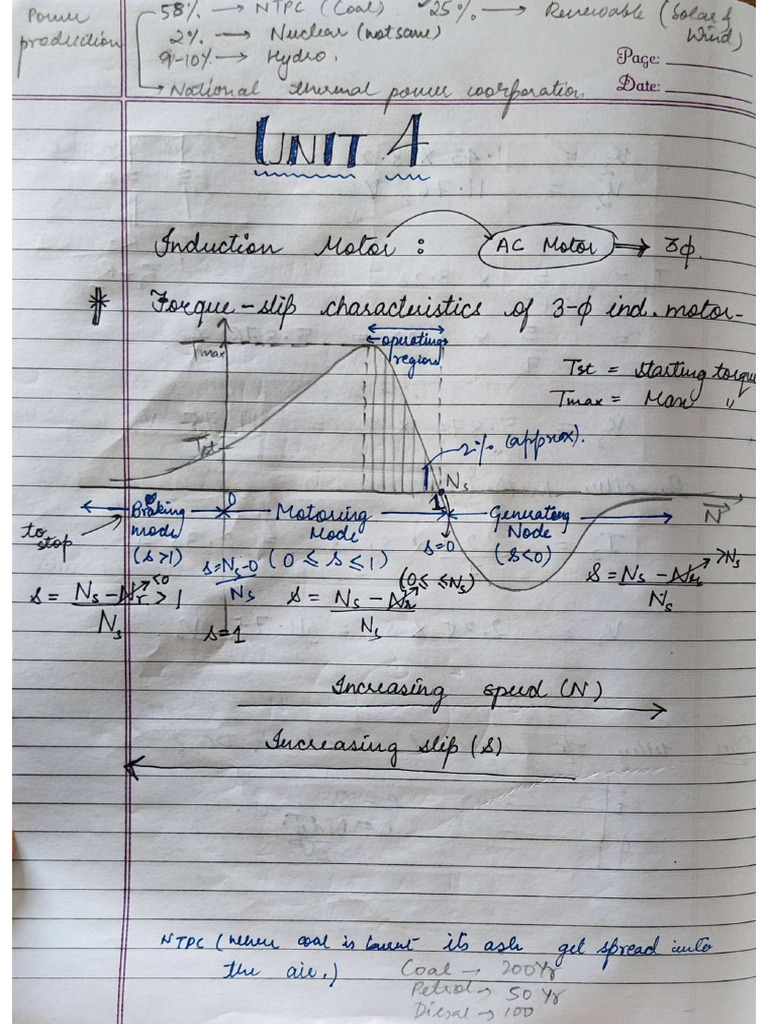 Power production
58% → NTPC (Coal) 25% → Renewable (Solar & Wind)
2% → Nuclear (not same)
9-10% → Hydro.
→ National thermal power coorporation
Page:
Date:
UNIT 4
Induction Motor : AC Motor → 3φ.
* Torque-slip characteristics of 3-φ ind. motor-
Tmax
operating region
Tst = starting torque
Tmax = Max "
Tst
2% (approx).
Ns
0
1
N
to stop
Braking mode
(s>1)
Motoring Mode
(0 ≤ s ≤ 1)
s=0
Generating Node
(s<0)
s = Ns - Nr / Ns > 1
<0
s = Ns - 0 / Ns
s = 1
s = Ns - Nr / Ns
(0 ≤ ≤ Ns)
s = Ns - Nr / Ns
>Ns
Increasing speed (N)
Increasing slip (s)
NTPC (when coal is burnt its ash get spread into
the air.)
Coal → 200 Yr
Petrol → 50 Yr
Diesal → 100